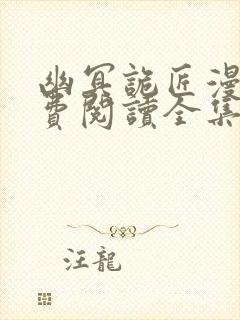 幽冥詭匠漫
費閱讀全集
汪龍